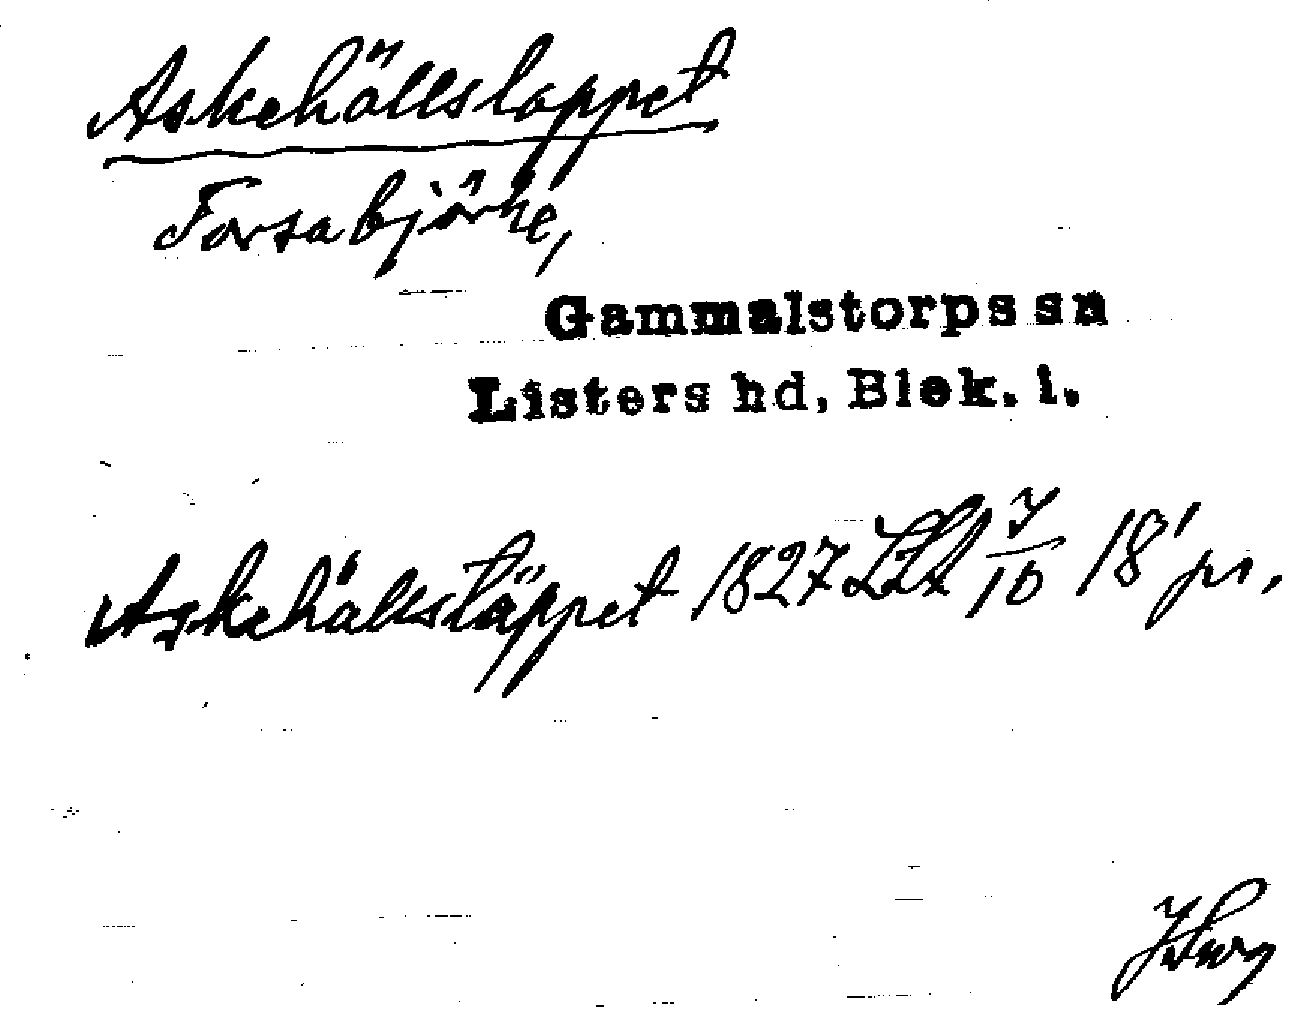 Askehällslappet
Forsabjörke,
Gammalstorps sn
Listers hd, Blek. l.
Askehällstäppet 1827 7/10 18' pr.